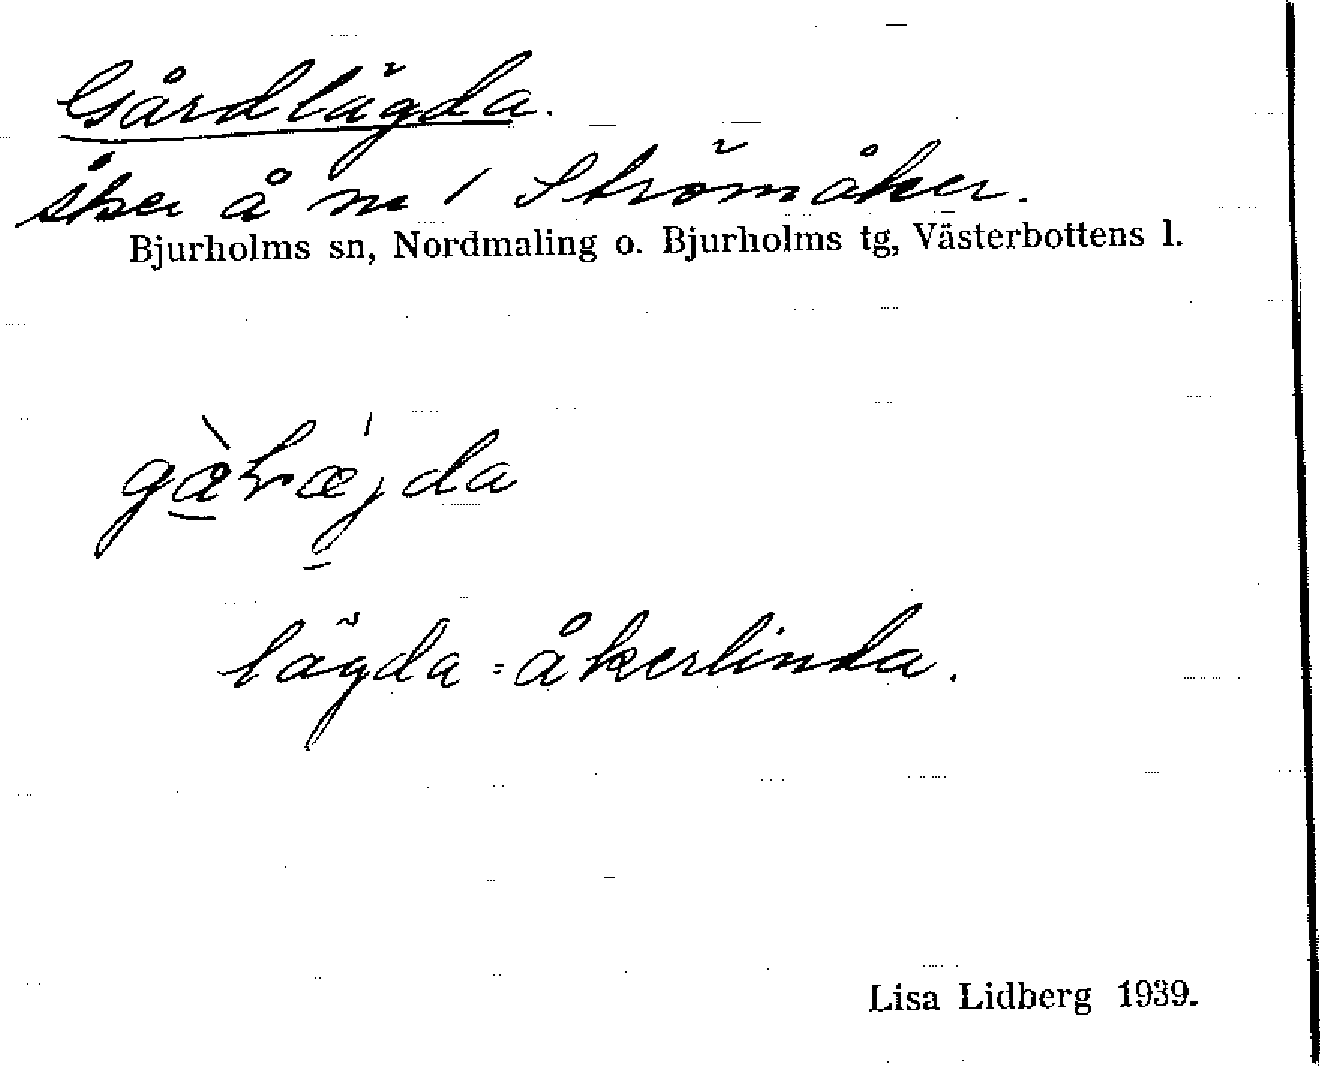 Gårdlägda.
åker å nr 1 Strömåker.
Bjurholms sn, Nordmaling o. Bjurholms tg, Västerbottens l.
lägda = åkerlinda.
Lisa Lidberg 1939.